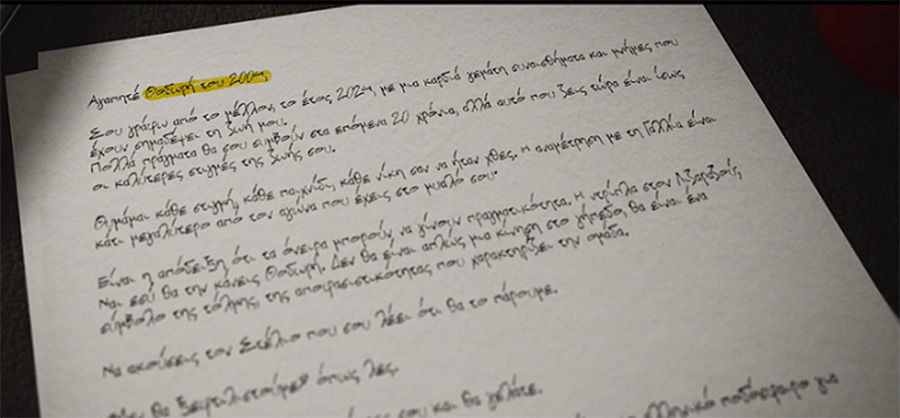 Αγαπητέ Θοδωρή του 2004,
Σου γράφω από το μέλλον, το έτος 2024, με μια καρδιά γεμάτη συναισθήματα και μνήμες που
έχουν σημαδέψει τη ζωή μου.
Πολλά πράγματα θα σου συμβούν στα επόμενα 20 χρόνια, αλλά αυτό που ζεις τώρα είναι ίσως
οι καλύτερες στιγμές της ζωής σου.
Θυμάμαι κάθε στιγμή, κάθε παιχνίδι, κάθε νίκη σαν να ήταν χθες. Η αναμέτρηση με τη Γαλλία είναι
κάτι μεγαλύτερο από τον αγώνα που έχεις στο μυαλό σου.
Είναι η απόδειξη ότι τα όνειρα μπορούν να γίνουν πραγματικότητα. Η ντρίπλα στον Λιζαραζούς,
Ναι εσύ θα την κάνεις Θοδωρή. Δεν θα είναι απλώς μια κίνηση στο γήπεδο, θα είναι ένα
σύμβολο της τόλμης, της αποφασιστικότητας που χαρακτηρίζει την ομάδα.
Να ακούσεις τον Στέλιο που σου λέει ότι θα το πάρουμε.
θα ξεφτιλιστούμε" όπως λες.
σου και θα γελάτε.
ελληνικό ποδόσφαιρο για